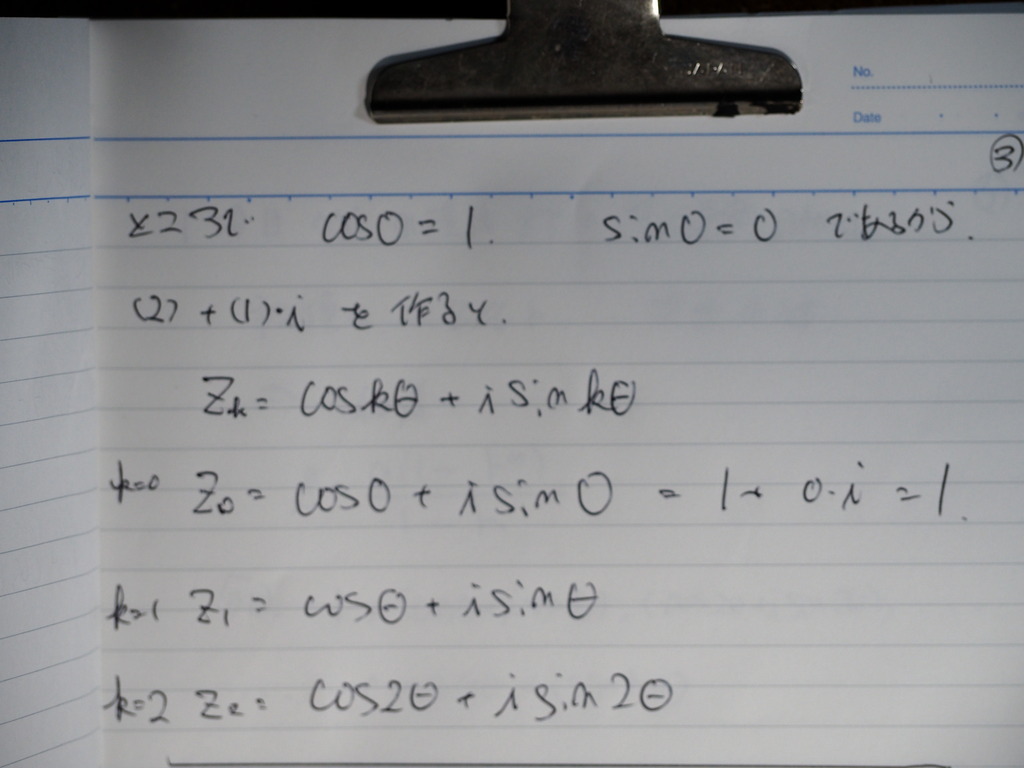 No.
Date
③
ところで cos0 = 1. sin0 = 0 であるから.
(2) + (1)・i を作ると.
Zk = coskθ + i sin kθ
k=0 Z0 = cos0 + i sin 0 = 1 + 0・i = 1.
k=1 Z1 = cosθ + i sin θ
k=2 Z2 = cos2θ + i sin 2θ